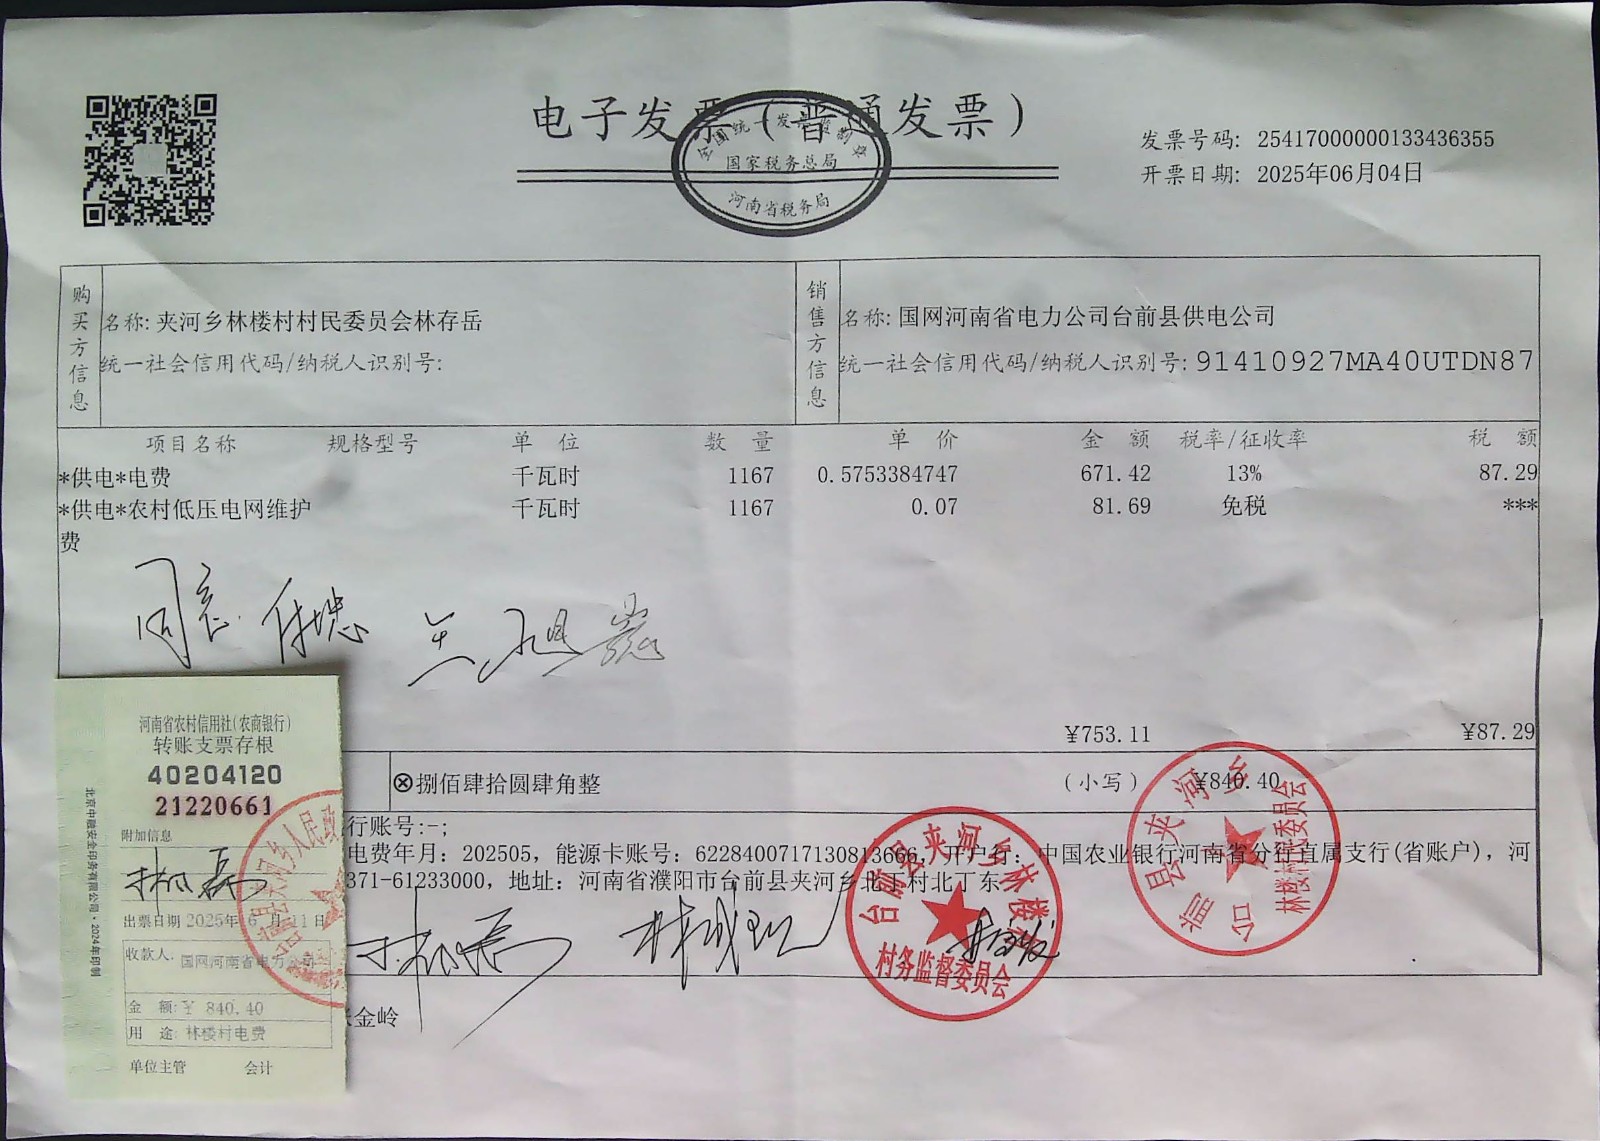 电子发票（普通发票）
全国统一发票监制章
国家税务总局
河南省税务局
发票号码: 25417000000133436355
开票日期: 2025年06月04日
购买方信息
名称: 夹河乡林楼村村民委员会林存岳
统一社会信用代码/纳税人识别号:
销售方信息
名称: 国网河南省电力公司台前县供电公司
统一社会信用代码/纳税人识别号: 91410927MA40UTDN87
项目名称 规格型号 单 位 数 量 单 价 金 额 税率/征收率 税 额
*供电*电费 千瓦时 1167 0.5753384747 671.42 13% 87.29
*供电*农村低压电网维护费 千瓦时 1167 0.07 81.69 免税 ***
同意
¥753.11 ¥87.29
⊗捌佰肆拾圆肆角整 （小写） ¥840.40
行账号:-;
电费年月: 202505, 能源卡账号: 6228400717130813666, 开户行: 中国农业银行河南省分行直属支行(省账户), 河
371-61233000, 地址: 河南省濮阳市台前县夹河乡北丁村北丁东
金岭
河南省农村信用社(农商银行)
转账支票存根
40204120
21220661
附加信息
出票日期 2025年6月11日
收款人: 国网河南省电力公司
金 额: ¥ 840.40
用 途: 林楼村电费
单位主管 会计
北京中融安全印务有限公司·2024年印制
台前县夹河乡林楼村
村务监督委员会
台前县夹河乡
林楼村民委员会